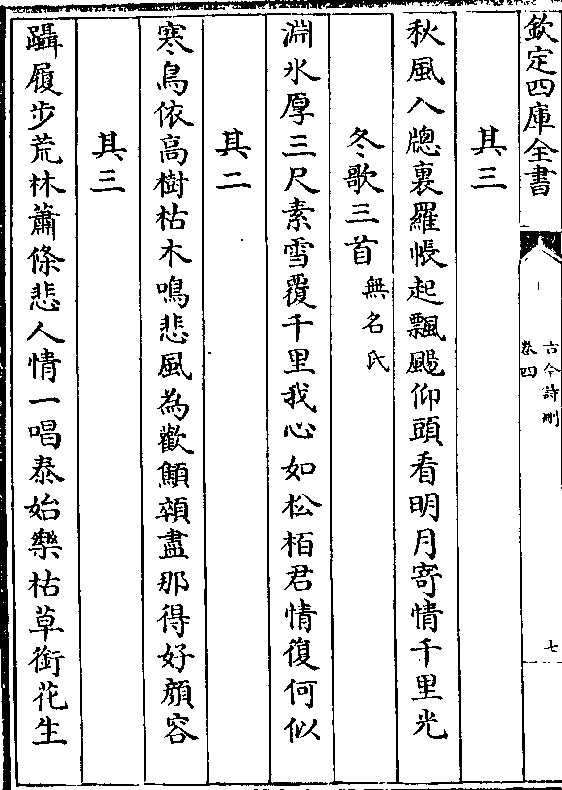 欽定四庫全書
古今詩刪
卷四
七
其三
秋風入牕裏羅帳起飄颺仰頭看明月寄情千里光
冬歌三首無名氏
淵氷厚三尺素雪覆千里我心如松栢君情復何似
其二
寒鳥依高樹枯木鳴悲風為歡顦顇盡那得好顔容
其三
躡履步荒林蕭條悲人情一唱泰始樂枯草銜花生